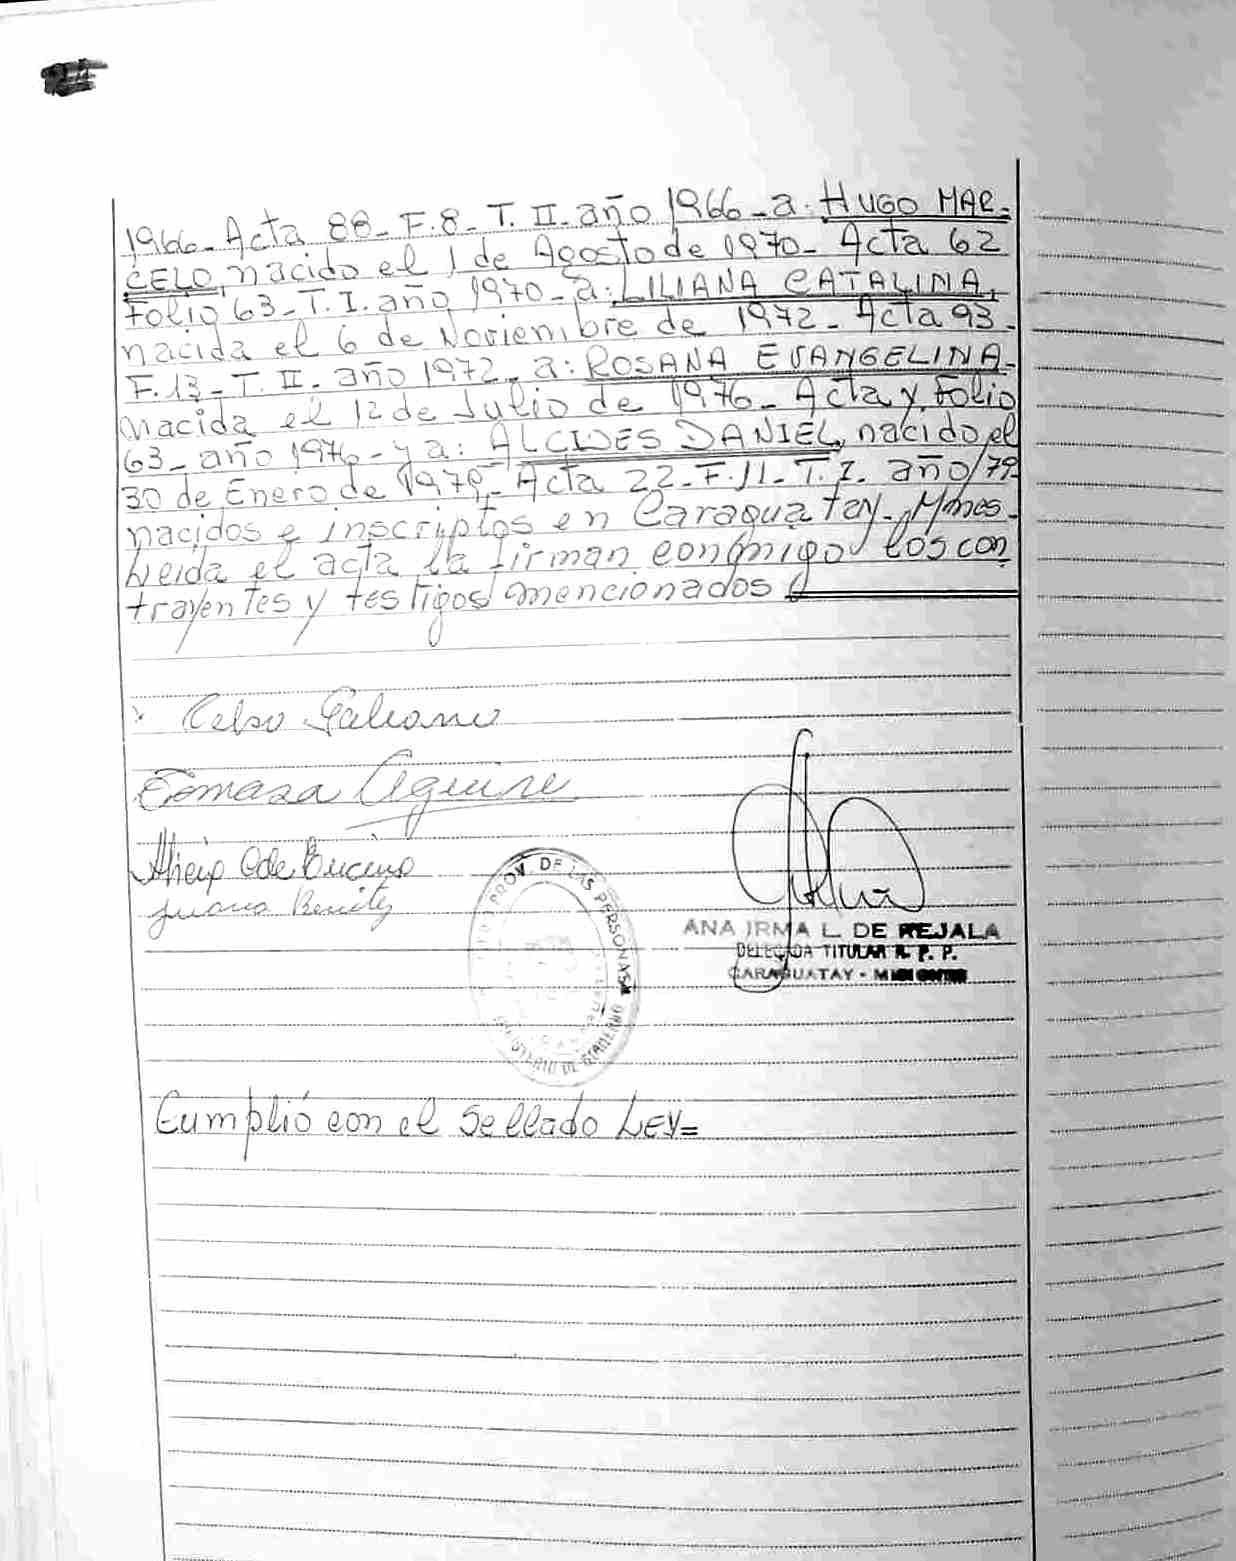 1966_ Acta 88_ F.8_ T. II_ año 1966_ a: HUGO MAR_
CELO, nacido el 1 de Agosto de 1970_ Acta 62
Folio 63_ T. I. año 1970_ a: LILIANA CATALINA,
nacida el 6 de Noviembre de 1972_ Acta 93_
F.13_ T. II_ año 1972_ a: ROSANA EVANGELINA_
nacida el 12 de Julio de 1976_ Acta y Folio
63_ año 1976_ y a: ALCIDES DANIEL, nacido el
30 de Enero de 1979_ Acta 22_ F.11_ T. I. año/79
nacidos e inscriptos en Caraguatay_ Mnes_
Leida el acta la firman conmigo los con
trayentes y testigos mencionados
Celso Galeano
Tomasa Aguirre
Juana Benitez
PROV. DE LAS PERSONAS
MINISTERIO DE GOBIERNO
ANA IRMA L. DE REJALA
DELEGADA TITULAR R. P. P.
CARAGUATAY - MISIONES
Cumplió con el Sellado LEY=